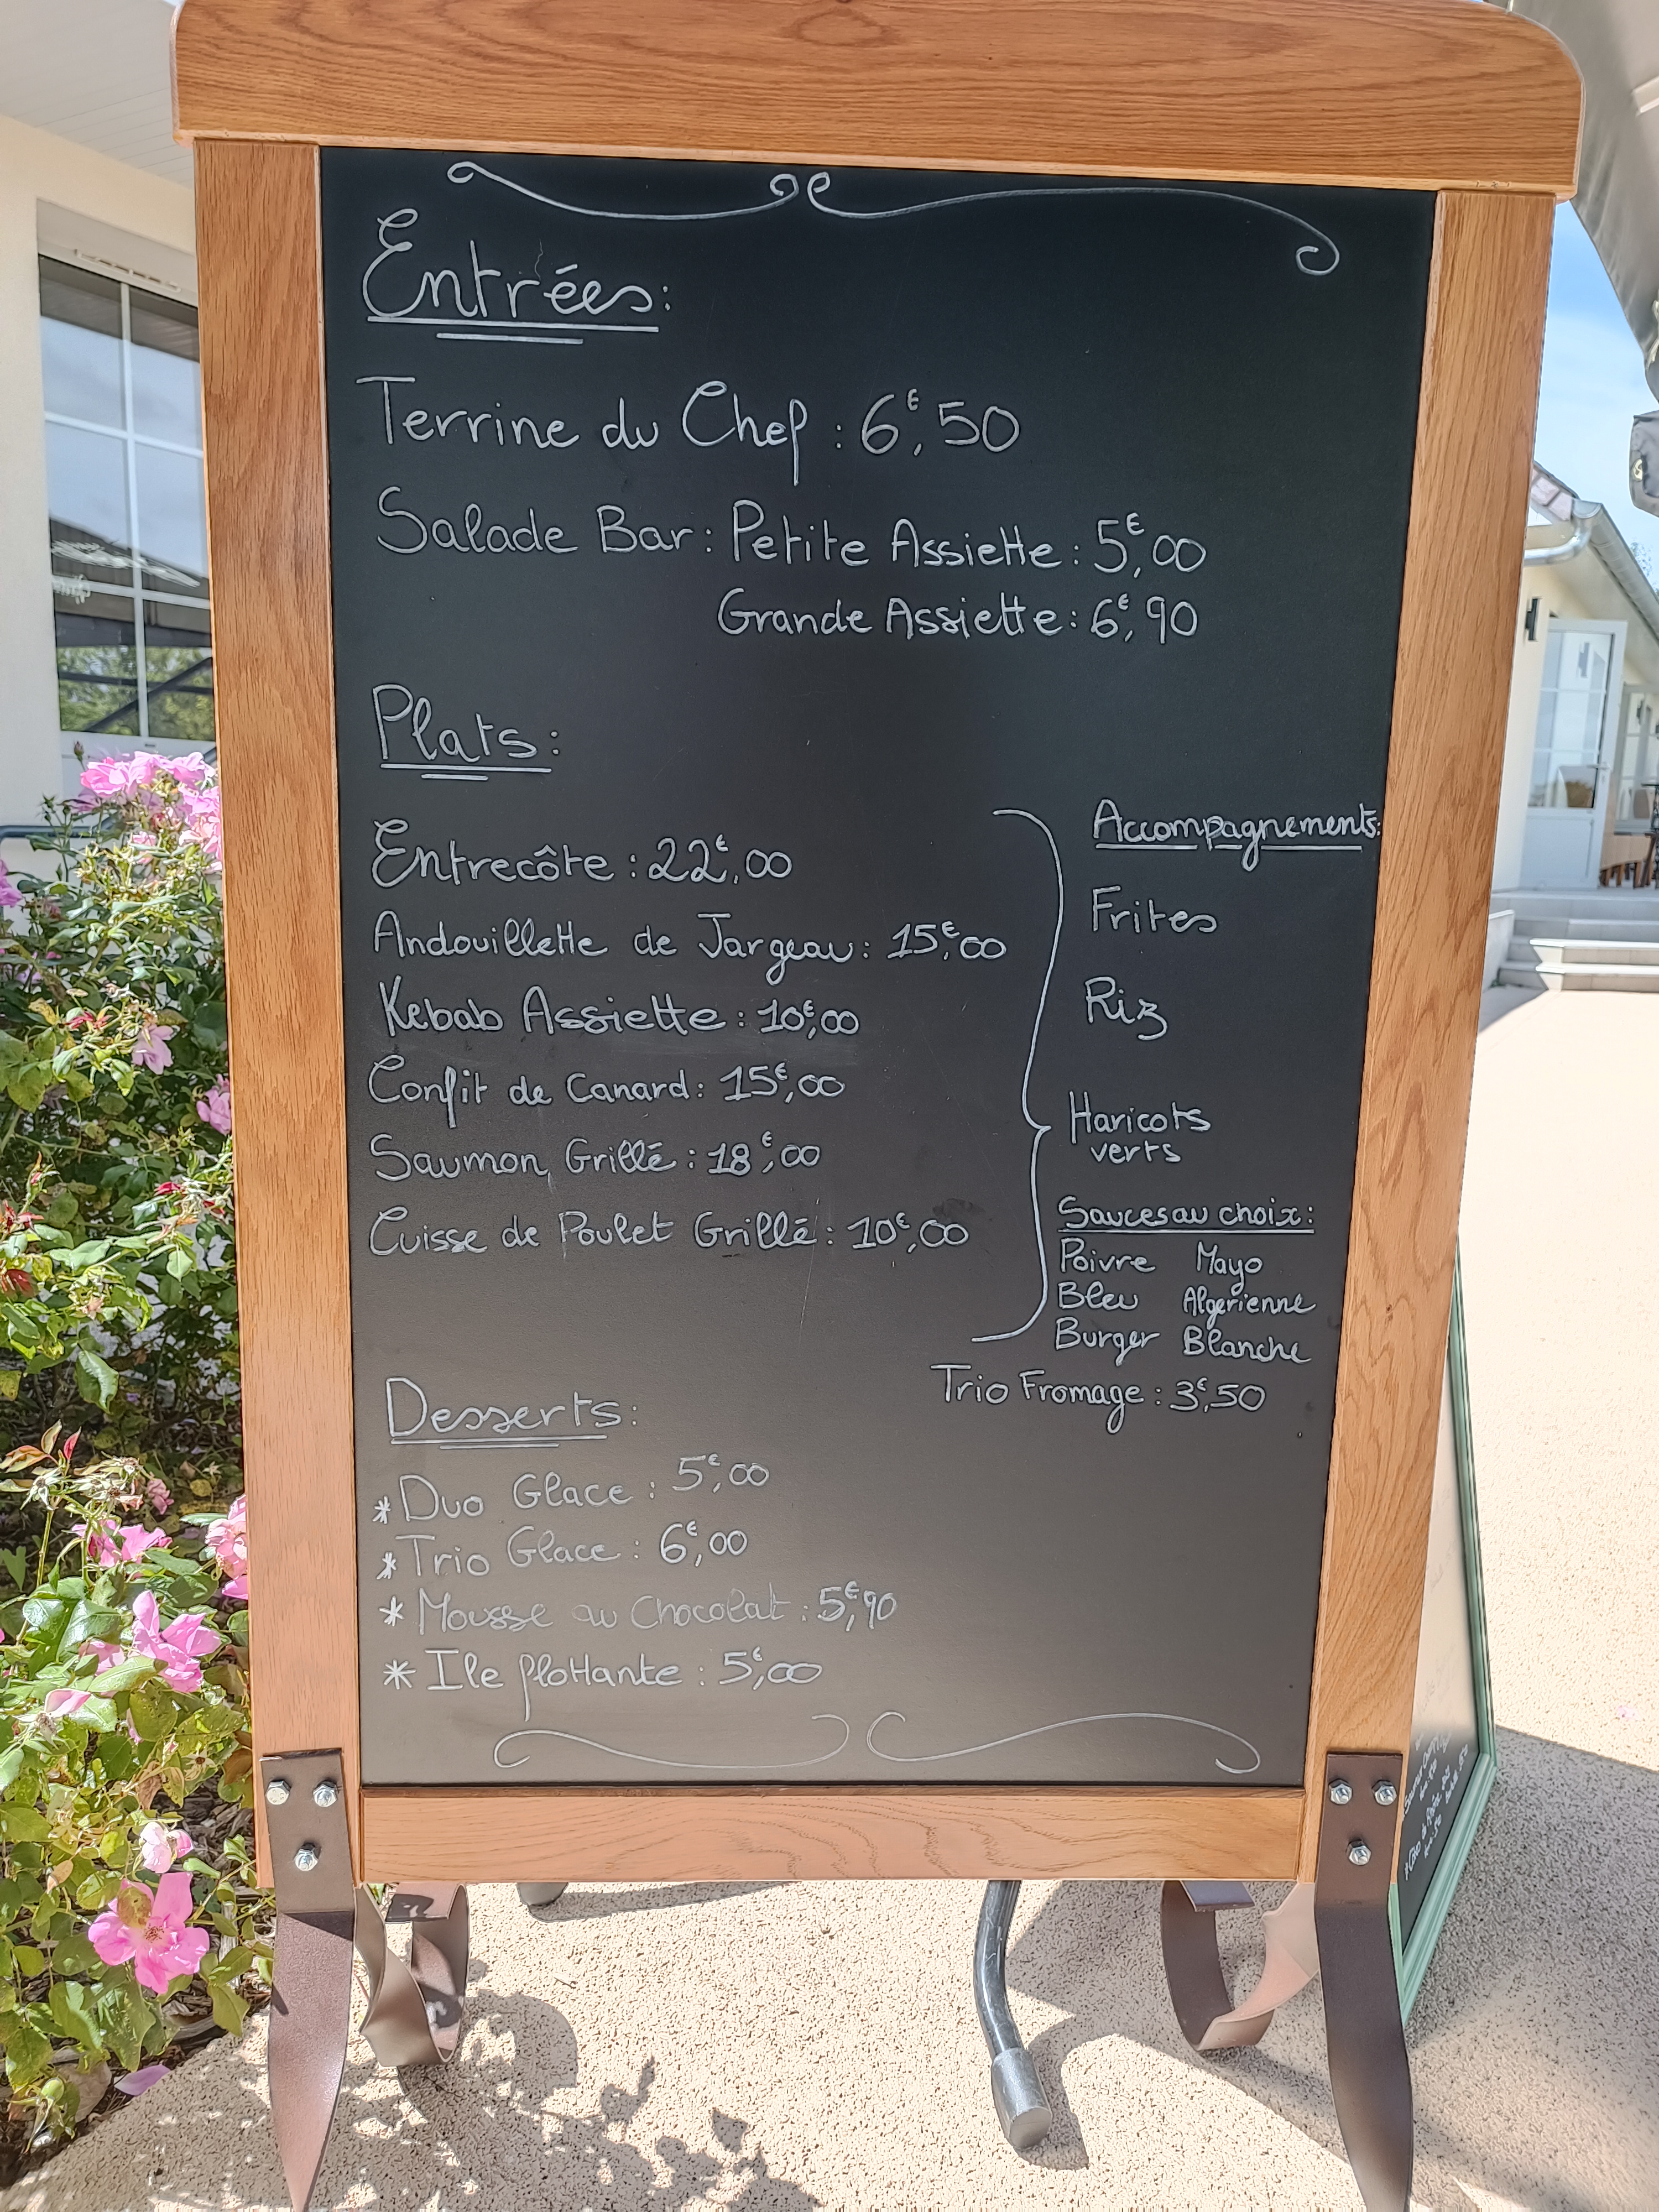 Entrées:
Terrine du Chef : 6€,50
Salade Bar : Petite Assiette : 5€,00
Grande Assiette : 6€,90
Plats :
Entrecôte : 22€,00
Andouillette de Jargeau : 15€,00
Kebab Assiette : 10€,00
Confit de Canard : 15€,00
Saumon Grillé : 18€,00
Cuisse de Poulet Grillé : 10€,00
Accompagnements:
Frites
Riz
Haricots
verts
Sauces au choix :
Poivre Mayo
Bleu Algerienne
Burger Blanche
Trio Fromage : 3€,50
Desserts :
* Duo Glace : 5€,00
* Trio Glace : 6€,00
* Mousse au Chocolat : 5€,90
* Ile flottante : 5€,00